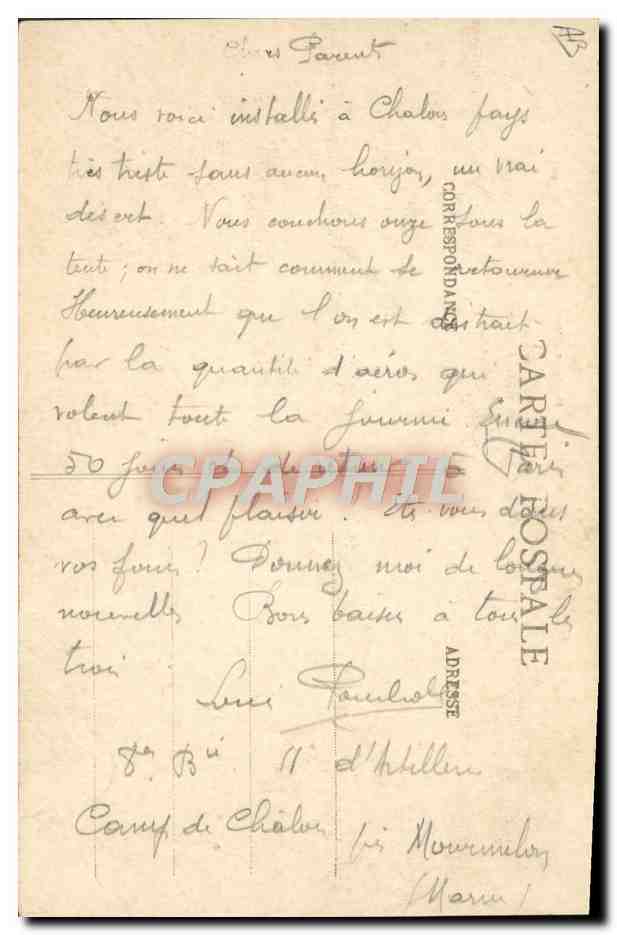 Chers Parent
Nous voici installés à Chalons pays
très triste sans aucun horizon, un vrai
désert. Nous couchons onze sous la
tente; on ne sait comment se retourner
Heureusement que l'on est distrait
par la quantité d'aéros qui
volent toute la journée
50 jours de retour à Paris
avec quel plaisir. Ets vous dans
vos fours? Donnez moi de longues
nouvelles Bons baisers à tous les
trois
Louis
8e Bie 11 d'Artillerie
Camp de Châlons
près Mourmelon
(Marne)
CORRESPONDANCE
CARTE POSTALE
ADRESSE
CPAPHIL
AB